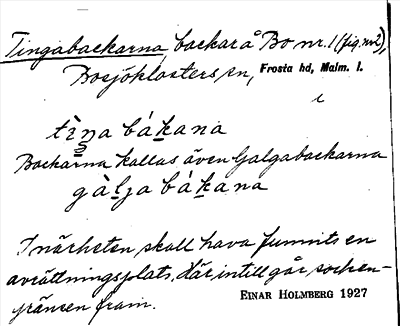 Tingabackarna, backar å Bo nr. 1 (fig. nr 2),
Bosjöklosters sn, Frosta hd, Malm. l.
tìŋa bákana
Backarna kallas även Galgabackarna
gàlja bákana
I närheten skall hava funnits en
avrättningsplats, där intill går socken-
gränsen fram.
EINAR HOLMBERG 1927